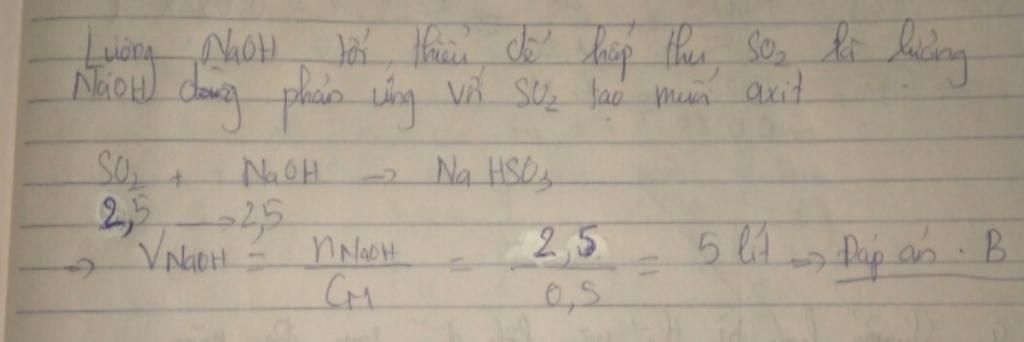 Lượng NaOH tối thiểu để hấp thu SO₂ là lượng
NaOH dùng phản ứng với SO₂ tạo muối axit
SO₂ + NaOH → NaHSO₃
2,5 → 2,5
→ V NaOH = n NaOH / C_M = 2,5 / 0,5 = 5 lít → Đáp án . B